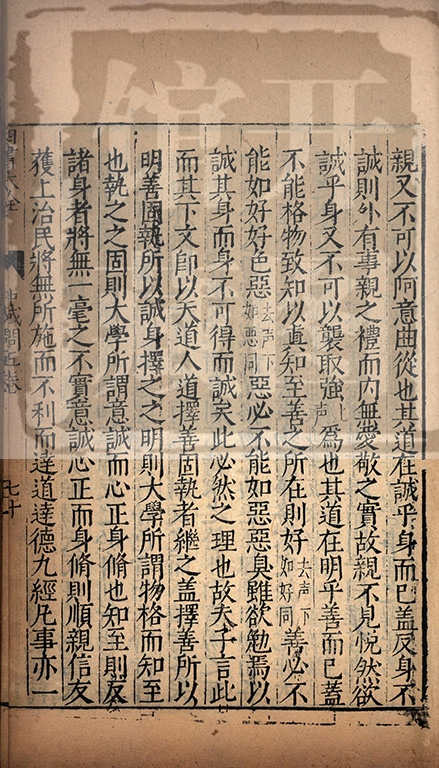 親又不可以阿意曲從也其道在誠乎身而已蓋反身不
誠則外有事親之禮而内無愛敬之實故親不見悅然欲
誠乎身又不可以襲取強上聲爲也其道在明乎善而已蓋
不能格物致知以真知至善之所在則好去声下如好同善必不
能如好好色惡去声下如惡同惡必不能如惡惡臭雖欲勉焉以
誠其身而身不可得而誠矣此必然之理也故夫子言此
而其下文即以天道人道擇善固執者繼之蓋擇善所以
明善固執所以誠身擇之之明則大學所謂物格而知至
也執之之固則大學所謂意誠而心正身脩也知至則反
諸身者將無一毫之不實意誠心正而身脩則順親信友
獲上治民將無所施而不利而達道達德九經凡事亦一
四書大全
中庸或問
七十